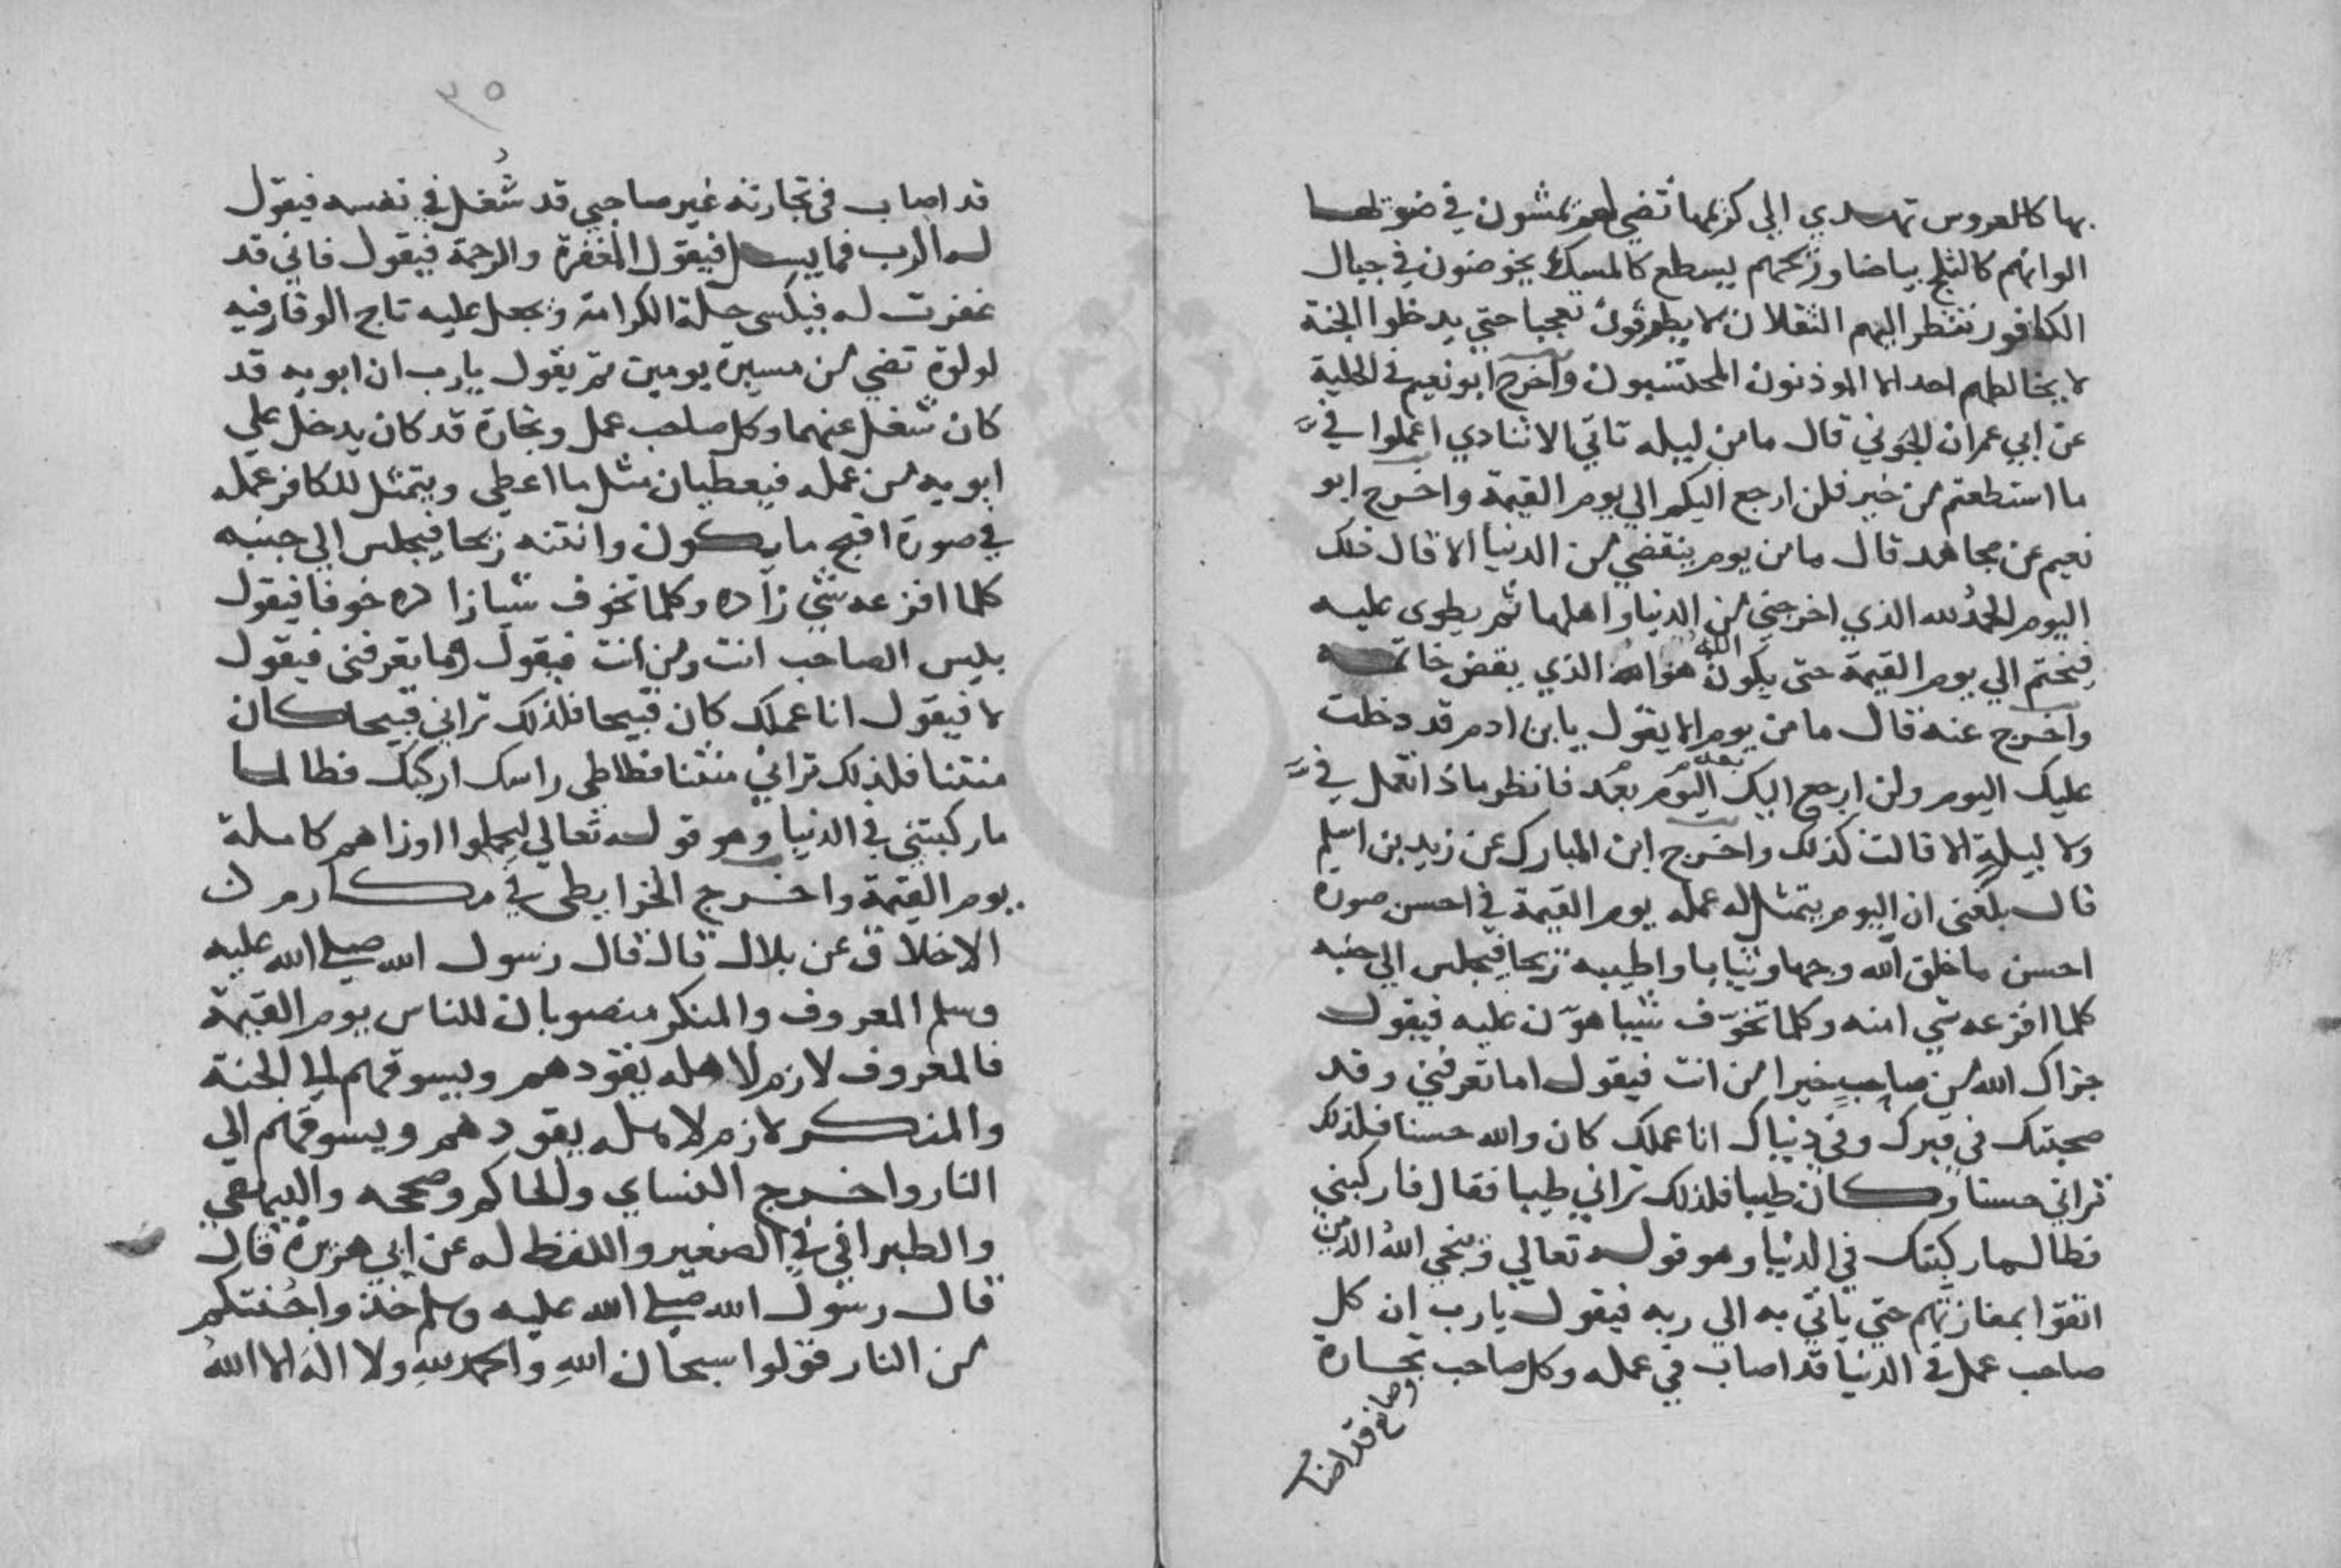 بها كالعروس تهدي الي كريمها تضي لهم يمشون في ضوئها
الوانهم كالثلج بياضا وريحهم يسطع كالمسك يخوضون في جبال
الكافور ينظر اليهم الثقلان لا يطرقون تعجبا حتي يدخلوا الجنة
لا يخالطهم احد الا الموذنون المحتسبون واخرج ابو نعيم في الحلية
عن ابي عمران الجوني قال ما من ليله تاتي الا تنادي اعملوا في
ما استطعتم من خير فلن ارجع اليكم الي يوم القيمة واخرج ابو
نعيم عن مجاهد قال ما من يوم ينقضي من الدنيا الا قال ذلك
اليوم الحمد لله الذي اخرجني من الدنيا واهلها ثم يطوى عليه
فيختم الي يوم القيمة حتى يكون الله هو الذي يفض خاتمه
واخرج عنه قال ما من يوم الا يقول يا ابن ادم قد دخلت
عليك اليوم ولن ارجع اليك اليوم بعد فانظر ماذا تعمل في
ولا ليلة الا قالت كذلك واخرج ابن المبارك عن زيد بن اسلم
قال بلغنى ان اليوم يتمثل له عمله يوم القيمة في احسن صورة
احسن ما خلق الله وجها وثيابا واطيبه ريحا فيجلس الي جنبه
كلما افزعه شي امنه وكلما تخوف شيا هون عليه فيقول
جزاك الله من صاحب خيرا من انت فيقول اما تعرفني وقد
صحبتك في قبرك وفي دنياك انا عملك كان والله حسنا فلذلك
تراني حسنا وكان طيبا فلذلك تراني طيبا فقال فاركبني
فطالما ركبتك في الدنيا وهو قوله تعالي وينجي الله الذين
اتقوا بمفازتهم حتي ياتي به الي ربه فيقول يا رب ان كل
صاحب عمل في الدنيا قد اصاب في عمله وكل صاحب تجارة
وصانع قد اصاب
٣٥
قد اصاب في تجارته غير صاحبي قد شغل في نفسه فيقول
له الرب فما يسل فيقول المغفرة والرحمة فيقول فاني قد
غفرت له فيكسى حلة الكرامة ويجعل عليه تاج الوقار فيه
لولوة تضي من مسيرة يومين ثم يقول يا رب ان ابويه قد
كان شغل عنهما وكل صاحب عمل وتجارة قد كان يدخل علي
ابويه من عمله فيعطيان مثل ما اعطي ويتمثل للكافر عمله
في صورة اقبح ما يكون وانتنه ريحا فيجلس الي جنبه
كلما افزعه شي زاده وكلما تخوف شيا زاده خوفا فيقول
بليس الصاحب انت ومن انت فيقول اما تعرفنى فيقول
لا فيقول انا عملك كان قبيحا فلذلك تراني قبيحا كان
منتنا فلذلك تراني منتنا فطاطي راسك اركبك فطالما
ما ركبتني في الدنيا وهو قوله تعالي ليحملوا اوزاهم كاملة
يوم القيمة واخرج الخرايطى في مكارم ن
الاخلاق عن بلال قال قال رسول الله صلى الله عليه
وسلم المعروف والمنكر منصوبان للناس يوم القيمة
فالمعروف لازم لاهله يقودهم ويسوقهم الي الجنة
والمنكر لازم لاهله يقودهم ويسوقهم الي
النار واخرج النساي والحاكم وصححه والبيهقي
والطبراني في الصغير واللفظ له عن ابي هريرة قال
قال رسول الله صلى الله عليه وسلم خذوا جنتكم
من النار قولوا سبحان الله والحمد لله ولا اله الا الله